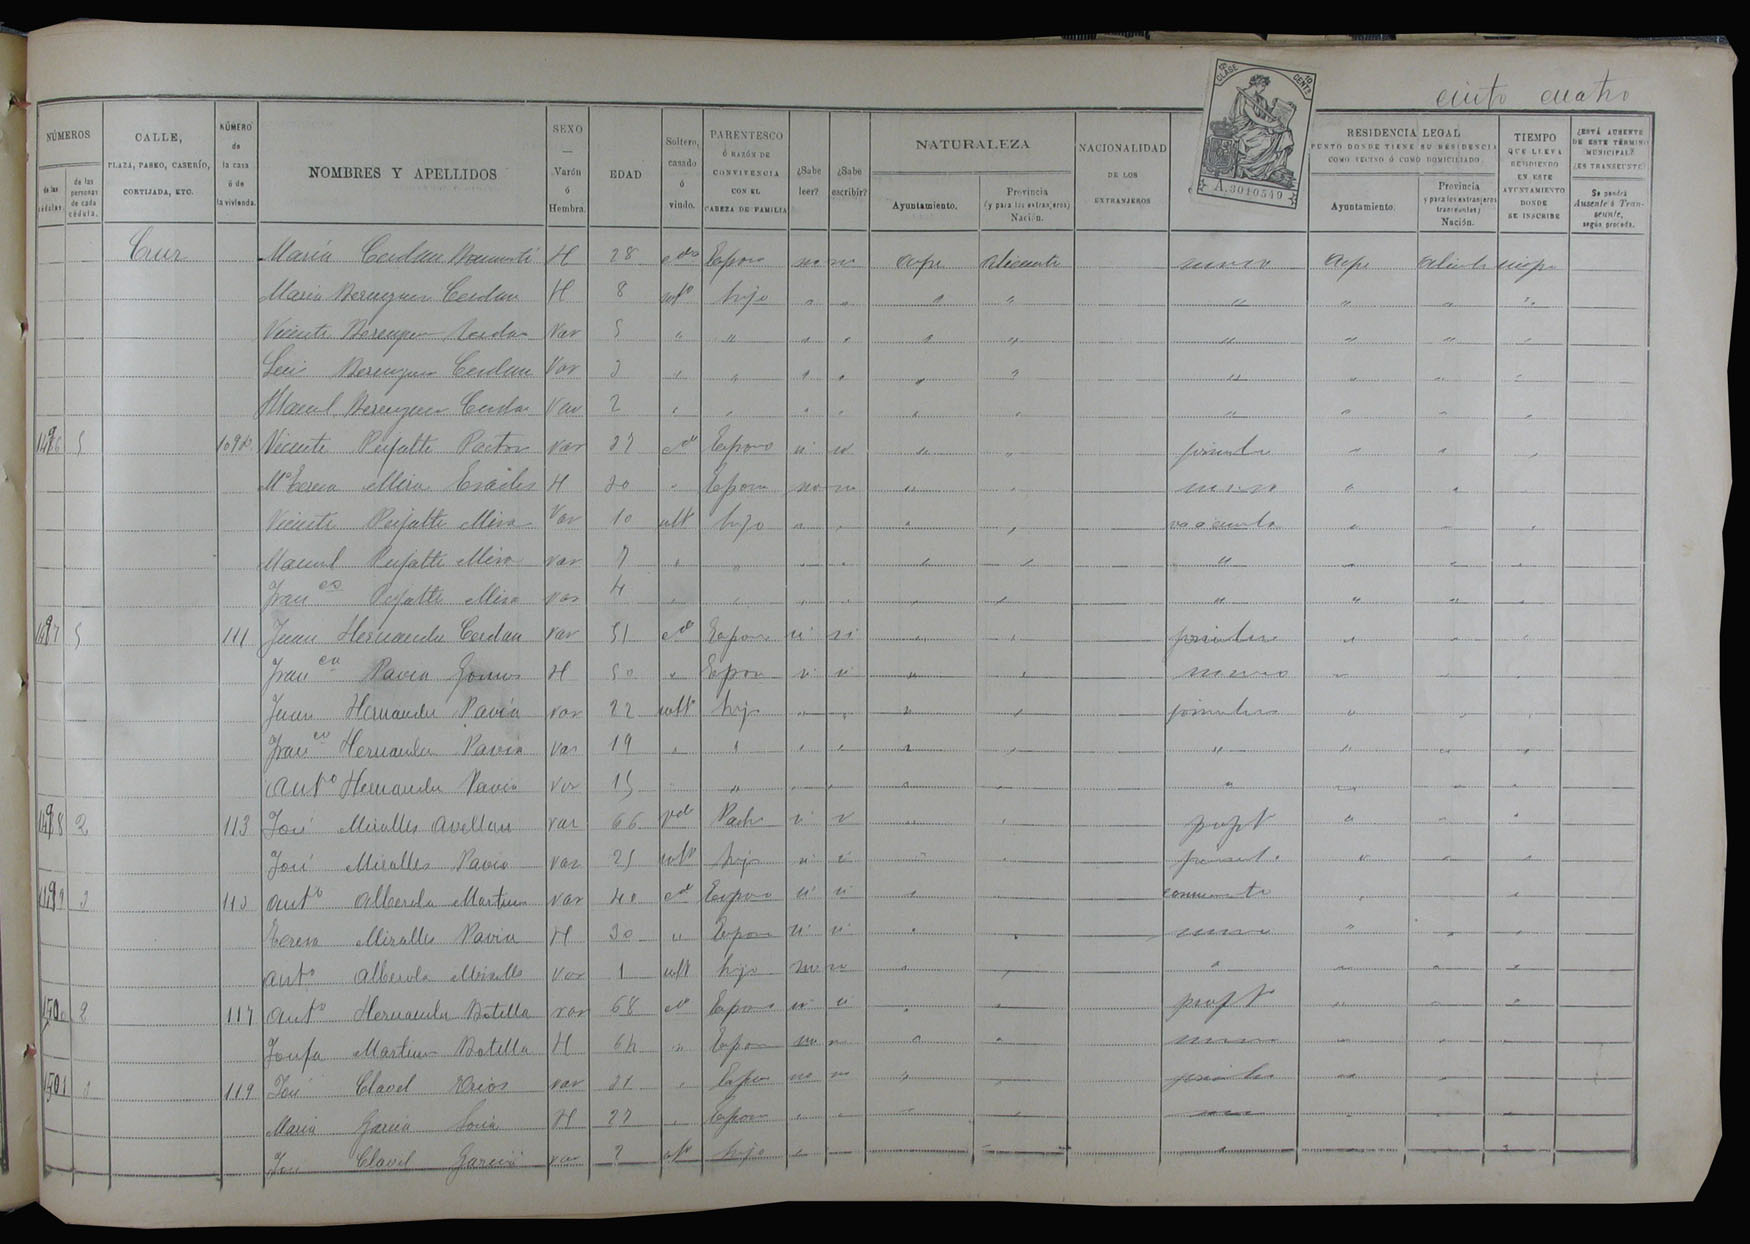 ciento cuatro
12ª CLASE 10 CENTS
A.3010549
NÚMEROS
de las cédulas.
de las personas de cada cédula.
CALLE,
PLAZA, PASEO, CASERÍO,
CORTIJADA, ETC.
NÚMERO
de
la casa
ó de
la vivienda.
NOMBRES Y APELLIDOS
SEXO
—
Varón
ó
Hembra.
EDAD
Soltero,
casado
ó
viudo.
PARENTESCO
Ó RAZÓN DE
CONVIVENCIA
CON EL
CABEZA DE FAMILIA
¿Sabe
leer?
¿Sabe
escribir?
NATURALEZA
Ayuntamiento.
Provincia
(y para los extranjeros)
Nación.
NACIONALIDAD
DE LOS
EXTRANJEROS
RESIDENCIA LEGAL
PUNTO DONDE TIENE SU RESIDENCIA
COMO VECINO Ó COMO DOMICILIADO.
Ayuntamiento.
Provincia
y para los extranjeros
transeuntes)
Nación.
TIEMPO
QUE LLEVA
RESIDIENDO
EN ESTE
AYUNTAMIENTO
DONDE
SE INSCRIBE
¿ESTÁ AUSENTE
DE ESTE TÉRMINO
MUNICIPAL?
(ES TRANSEUNTE)
Se pondrá
Ausente ó Tran-
seunte,
según proceda.
Cruz María Cerdan H 28 Esposa no no Aspe Alicante Aspe
María Berenguer Cerdan H 8 solto hijo " " " " " " " "
Vicente Berenguer Cerdan Var 5 " " " " " " " " " "
Luis Berenguer Cerdan Var 3 " " " " " " " " " "
Manuel Berenguer Cerdan Var 2 " " " " " " " " " "
1496 5 109 Vicente Pujalte Pastor var 37 cdo Esposo si si " " jornalero " " "
Mª Teresa Mira H 30 " Esposa no no " " " " "
Vicente Pujalte Mira Var 10 solto hijo " " " " " " "
Manuel Pujalte Mira var 7 " " " " " " " " " "
Franco Pujalte Mira var 4 " " " " " " " " " "
1497 5 111 Juan Hernandez Cerdan var 51 cdo Esposo si si " " jornalero " " "
Franca Pavia H 50 " Esposa si si " " " " "
Juan Hernandez Pavia var 22 solto hijo " " " " jornalero " " "
Franco Hernandez Pavia var 19 " " " " " " " " " "
Anto Hernandez Pavia var 15 " " " " " " " " "
1498 2 113 José Miralles Avellan var 66 vdo Padre si si " " propo " " "
José Miralles Pavia var 25 solto hijo si si " " " " "
1499 3 115 Anto Alberola Martinez var 40 cdo Esposo si si " " comerciante " "
Teresa Miralles Pavia H 30 " Esposa si si " " " " "
Anto Alberola Miralles var 1 solto hijo no no " " " " " "
1500 2 117 Anto Hernandez Botella var 68 cdo Esposo si si " " propo " " "
Josefa Martinez Botella H 64 " Esposa no no " " " " "
1501 3 119 José Clavel var 31 " Esposo no no " " jornalero "
María García H 27 " Esposa " " " " " " "
José Clavel García var 2 solto hijo " "